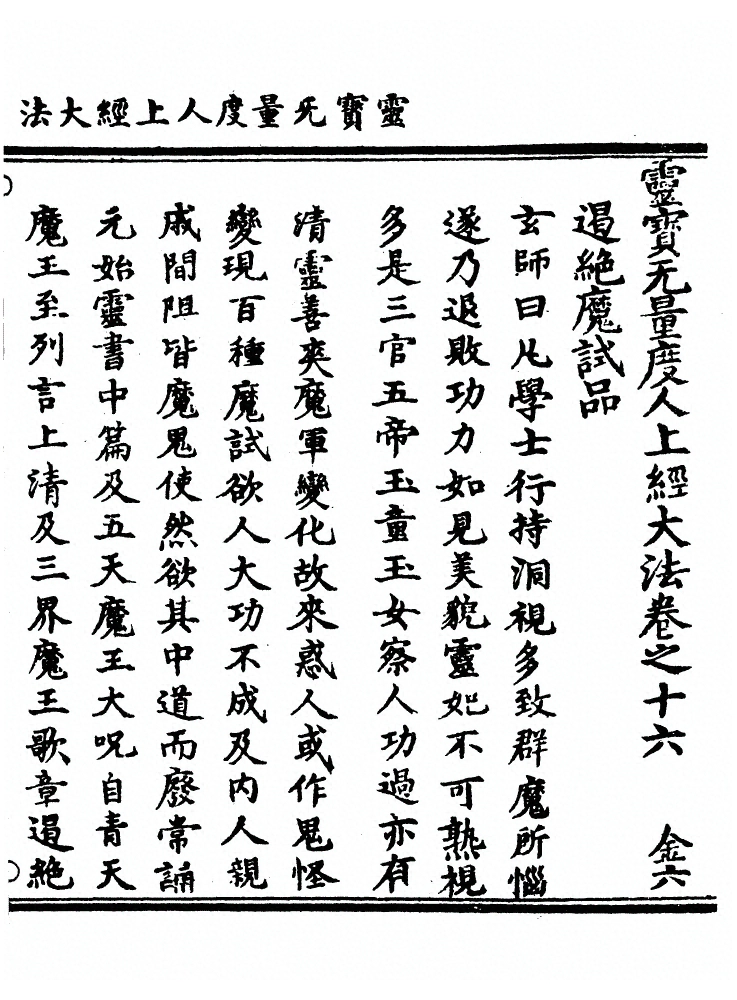 靈寶无量度人上經大法
靈寶无量度人上經大法卷之十六 金六
遏絶魔試品
玄師曰凡學士行持洞視多致群魔所惱
遂乃退敗功力如見美貌靈妃不可熟視
多是三官五帝玉童玉女察人功過亦有
清靈善爽魔軍變化故來惑人或作鬼怪
變現百種魔試欲人大功不成及内人親
戚間阻皆魔鬼使然欲其中道而廢常誦
元始靈書中篇及五天魔王大呪自青天
魔王至列言上清及三界魔王歌章遏絶